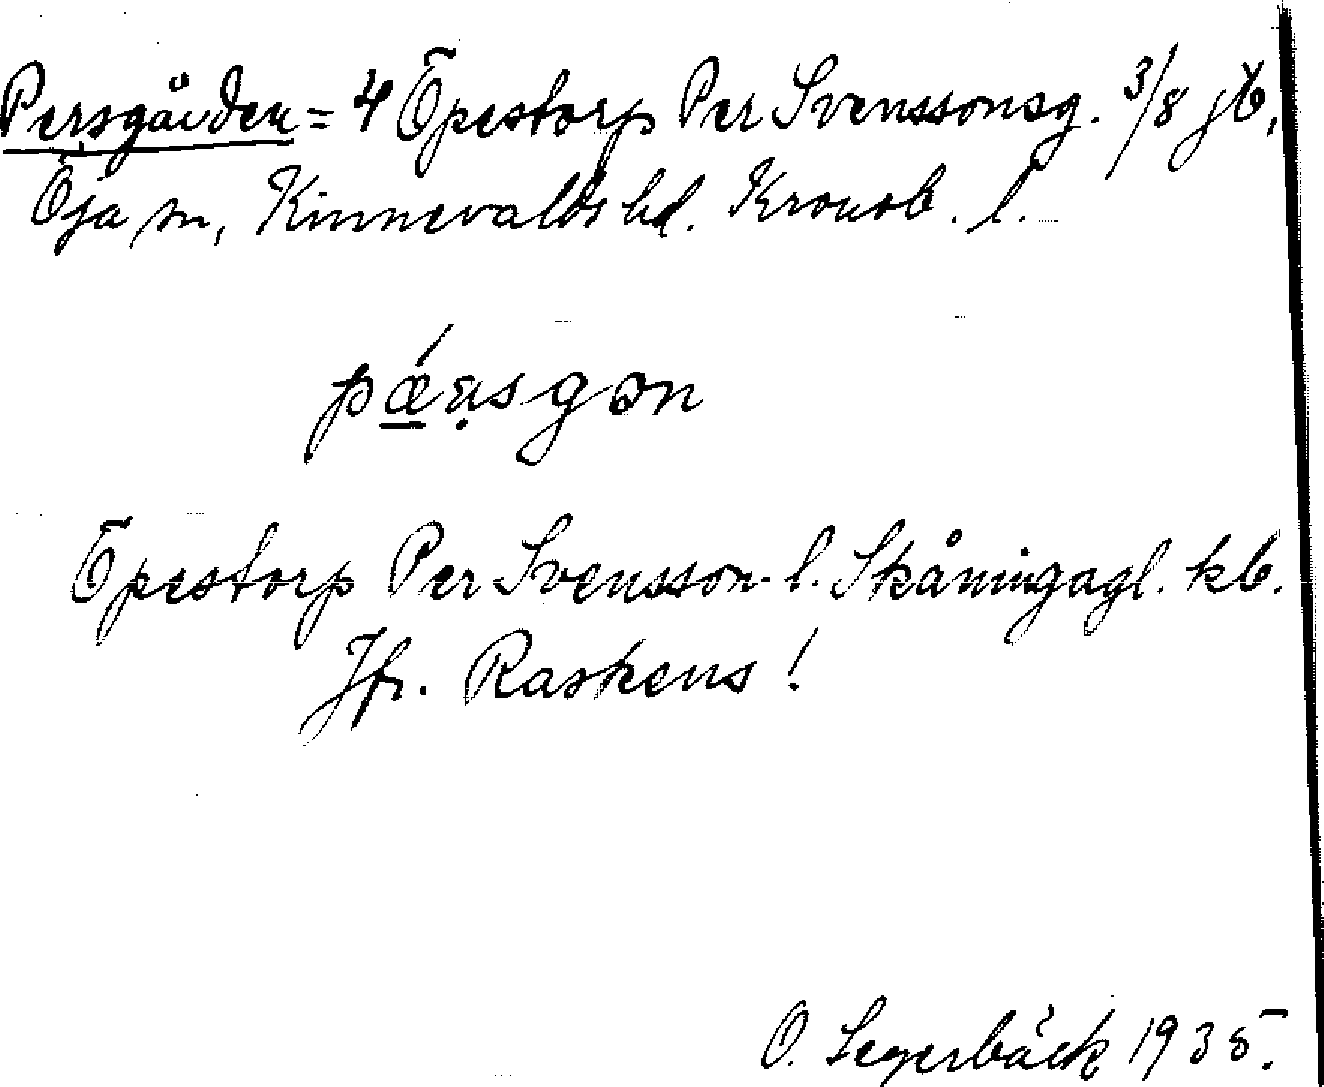 Persgården = 4 Öpestorp Per Svenssonsg. 3/8 jb,
Öja sn, Kinnevalds hd. Kronob. l.
Öpestorp Per Svensson- l. Skåningagl. kb.
Jfr. Raskens!
O. Segerbäck 1935.